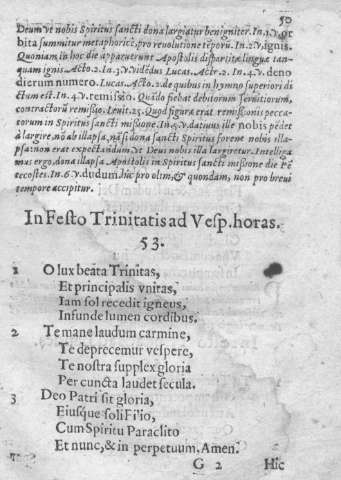 50
Deum vt nobis Spiritus sancti dona largiatur benigniter. In.1.v.or
bita summitur metaphoricè, pro reuolutione tẽporũ. In.2.v.ignis.
Quoniam in hoc die apparuerunt Apostolis dispartitæ linguæ tan-
quam ignis. Acto.2. In.3.v.vidẽdus Lucas. Actr.2. In.4.v. deno
dierum numero. Lucas. Acto.2. de quibus in hymno superiori di
ctum est. In.4.v. remissio. Quãdo fiebat debitorum seruitiorum,
contractorũ remissio. Leuit.25. Quod figura erat remissionis pecca-
torum in Spiritus sancti missione. In.5.v. datuus illæ nobis pẽdet
à largire. nõ ab illapsa, nã si dona sancti Spiritus forent nobis illa-
psa: non erat expectandum, vt Deus nobis illa largiretur. Intelliga
mus ergo, dona illapsa Apostolis in Spiritus sancti missione die Pẽ
tecostes. In.6.v. dudum. hic pro olim, & quondam, non pro breui
tempore accipitur.
In Festo Trinitatis ad Vesp. horas.
53.
1 O lux beata Trinitas,
Et principalis vnitas,
Iam sol recedit igneus,
Infunde lumen cordibus.
2 Te mane laudum carmine,
Te deprecemur vespere,
Te nostra supplex gloria
Per cuncta laudet secula.
3 Deo Patri sit gloria,
Eiusque soli Filio,
Cum Spiritu Paraclito
Et nunc, & in perpetuum. Amen.
G 2 Hic